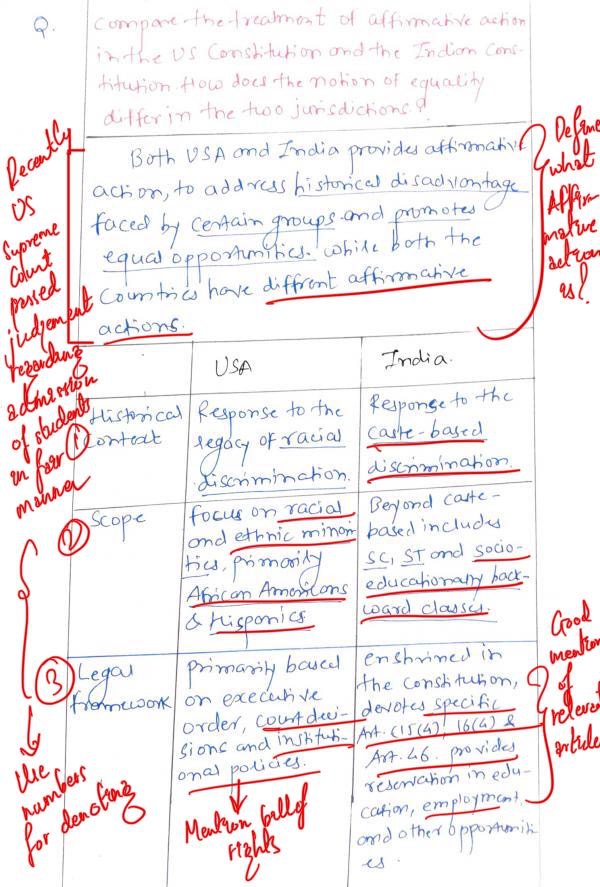 Q.
Compare the treatment of affirmative action
in the US Constitution and the Indian Cons-
titution. How does the notion of equality
differ in the two jurisdictions?
Both USA and India provides affirmative
action, to address historical disadvantage
faced by certain groups and promotes
equal opportunities. while both the
Countries have diffrent affirmative
actions.
Recently
US
Supreme
Court
passed
judgement
regarding
admission
of students
in fair
manner
Define
what
Affir
mative
action
is?
USA
India.
① Historical
Context
Response to the
legacy of racial
discrimination.
Response to the
caste-based
discrimination.
② Scope
focus on racial
and ethnic minori
ties, primarily
African Americans
& Hispanics
Beyond caste-
based includes
SC, ST and socio-
educationally back-
ward classes.
③ Legal
framework
primarily based
on executive
order, court deci-
sions and instituti-
onal policies.
enshrined in
the Constitution,
devotes specific
Art. (15(4), 16(4) &
Art. 46. provides
reservation in edu-
cation, employment
and other opportuniti
es.
Use
numbers
for denoting
Mention bill of
rights
Good
mention
of
relevent
article